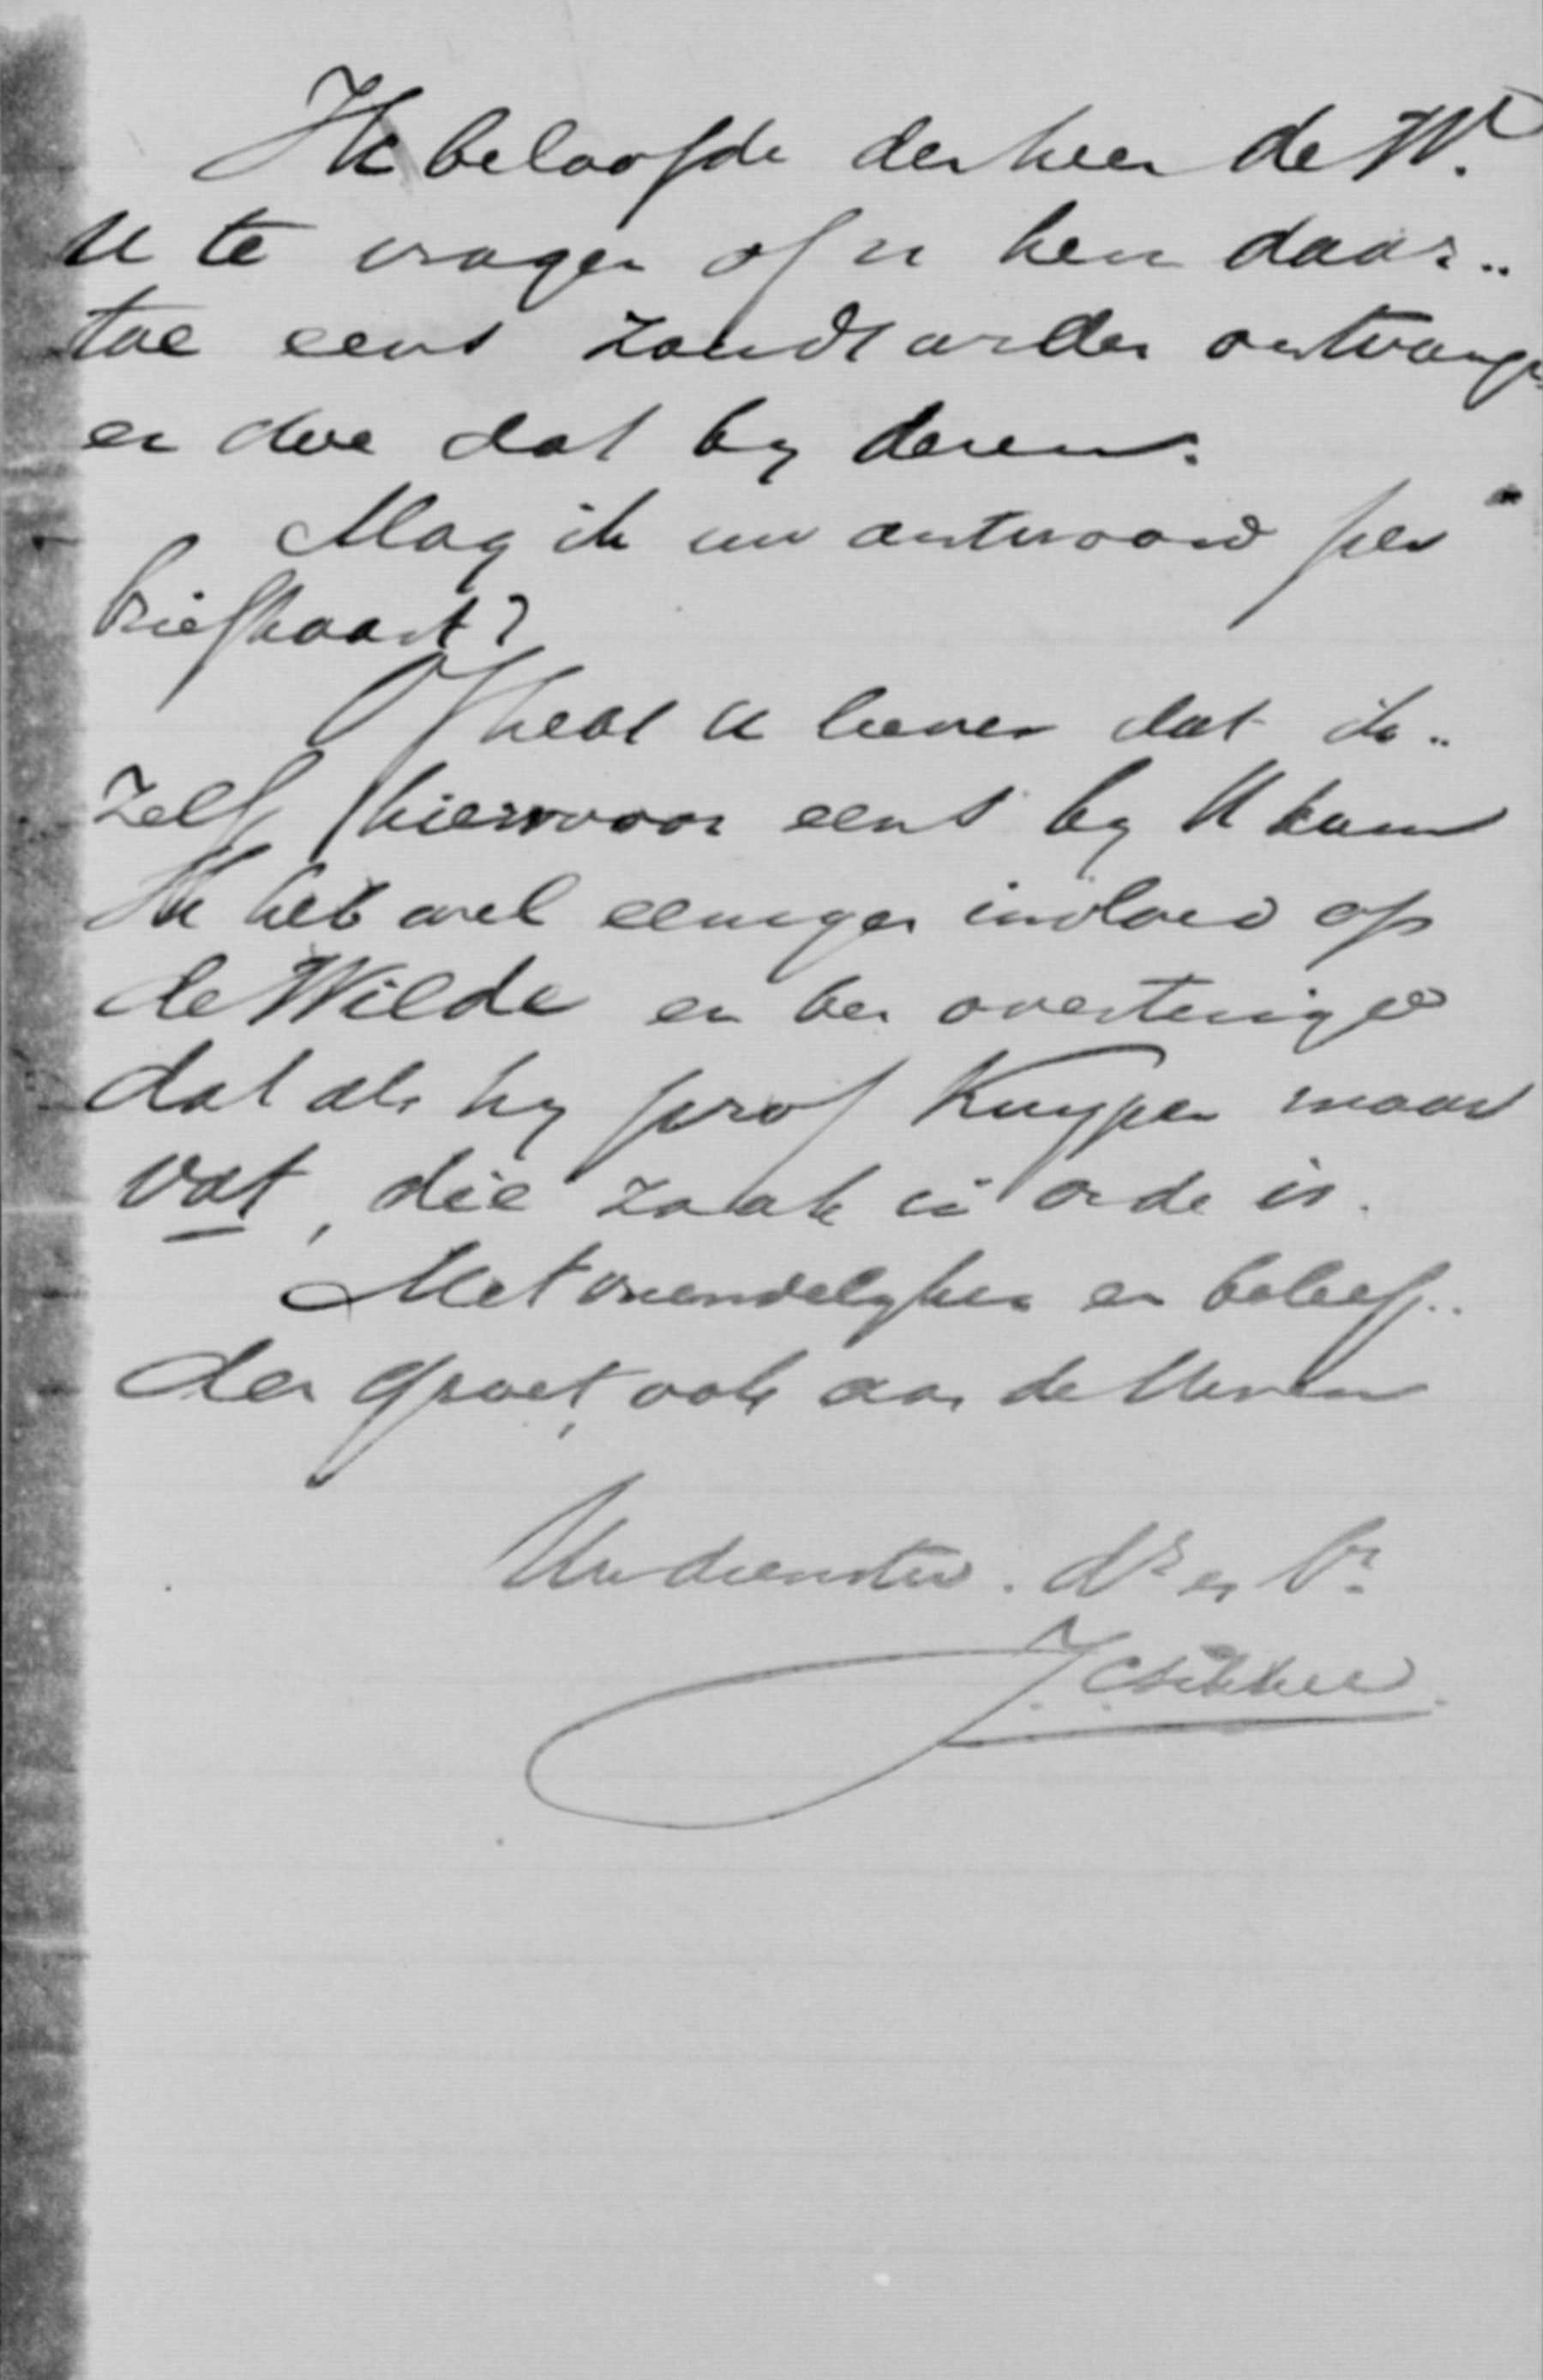 Ik beloofde den heer de W.
U te vragen of u hem daar..
toe eens zoudt willen ontvangen
en doe dat by dezen.
Mag ik uw antwoord per
briefkaart?
Of hebt U liever dat ik..
zelf hiervoor eens by U kom
Ik heb wel eenigen invloed op
de Wilde en ben overtuigd
dat als hy prof Kuyper maar
vat, die zaak in orde is.
Met vriendelyken en beleef..
den groet, ook aan de Uwen
Uw dienstw. dr en br
J.C. Sikkel